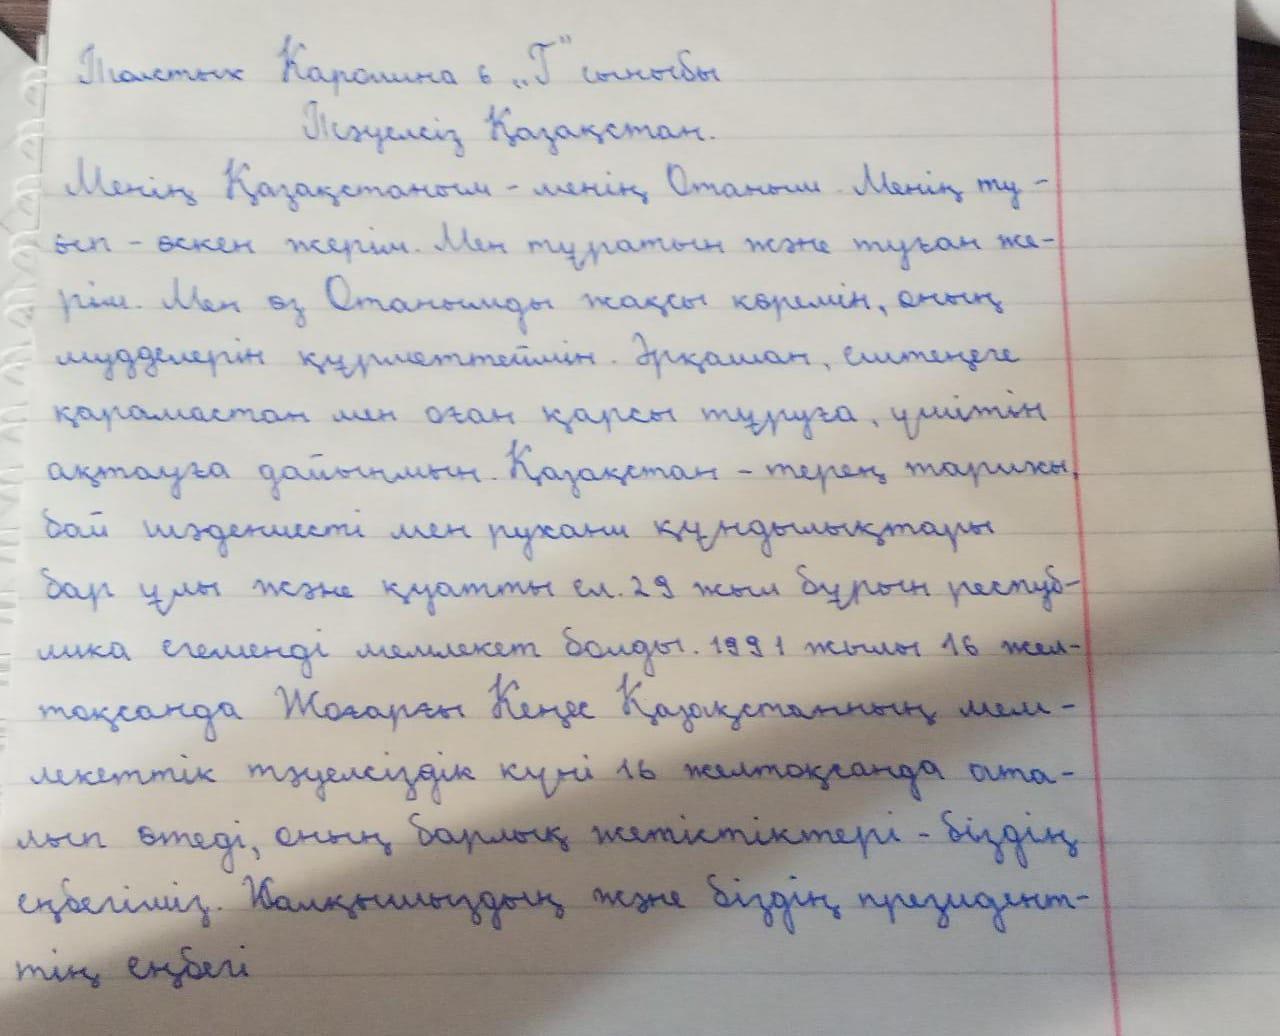 Толстых Каролина 6 „Г" сыныбы
Тәуелсіз Қазақстан.
Менің Қазақстаным - менің Отаным. Менің ту-
ып - өскен жерім. Мен тұратын және туған же-
рім. Мен өз Отанымды жақсы көремін, оның
мудделерін құрметтеймін. Әрқашан, ештеңеге
қарамастан мен оған қарсы тұруға, үмітін
ақтауға дайынмын. Қазақстан - терең тарихы,
бай мәдениеті мен рухани құндылықтары
бар ұлы және қуатты ел. 29 жыл бұрын респуб-
лика егеменді мемлекет болды. 1991 жылы 16 жел-
тоқсанда Жоғарғы Кеңес Қазақстанның мем-
лекеттік тәуелсіздік күні 16 желтоқсанда ата-
лып өтеді, оның барлық жетістіктері - біздің
еңбегіміз. Халқымыздың және біздің президент-
тің еңбегі